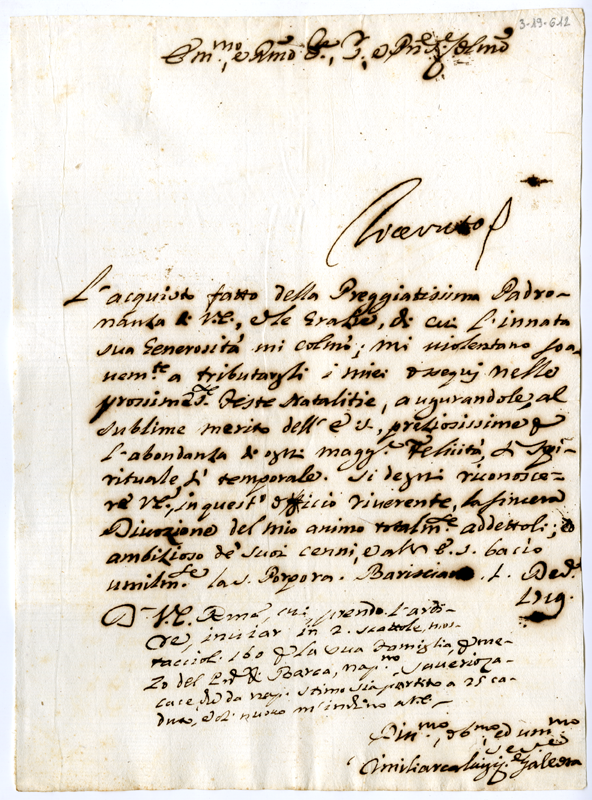 3-19-612
Em.mo, e Rmo Sr., e Pne Colmo
Ricevuto
L'acquisto fatto della Preggiatissima Padro-
nanza di V.E., e le Grazie, di cui l'innata
sua Generosità mi colmò; mi violentano soa-
vem.te a tributargli i miei ossequj nelle
prossime Ste Feste Natalitie, augurandole, al
sublime merito dell' E.S., preziosissime
l'abondanza di ogni magg.e Felicità, sì Spi-
rituale, sì temporale. Si degni riconosce-
re V.E., in quest' officio riverente, la sincera
Divozione del mio animo totalm.te addettoli; ed
ambizioso de suoi cenni, e all' E.S. bacio
umilm.te la S. Porpora. Barisciano. l. Ded.
1719.
D V.E. Rma, cui prendo l'ardi-
re, inviar in 2. scattole, mos-
taccioli 160 la sua Famiglia, me-
zo del Pne di Barca, Saverio
da Nap. stimo sia partito a 25 ca-
duto, e di nuovo m'inchino a V.E.
Div.mo, ob.mo, ed um.mo